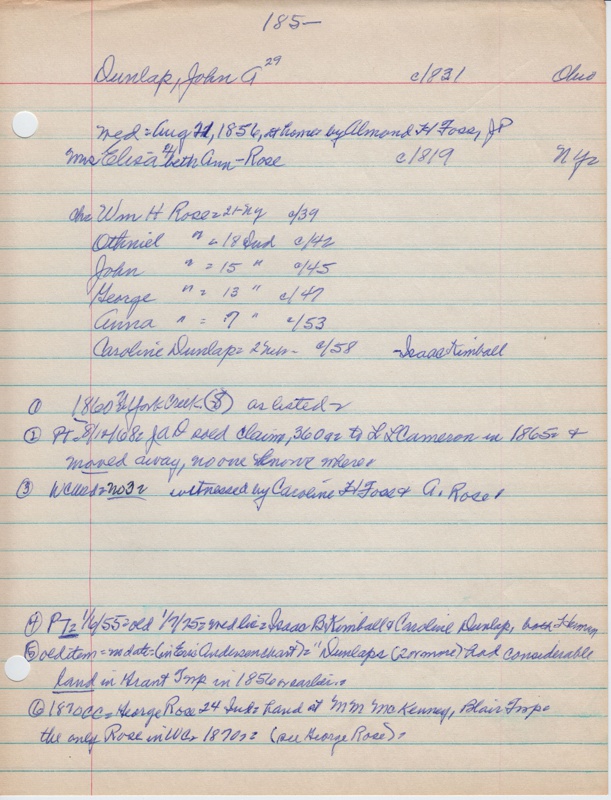 185-
Dunlap, John A 29 c/1831 Ohio
med = Aug 21, 1856, at home by Almond H Foss, JP
Mrs Elisabeth Ann - Rose c/1819 NY
chs Wm H Rose = 21 - NY c/39
Othniel " = 18 Ind c/42
John " = 15 " c/45
George " = 13 " c/47
Anna " = 7 " c/53
Caroline Dunlap = 2 c/58 - Isaac Kimball
① 1860 York Creek (8) as listed
② PT = 8/10/68 = J A D sold claim, 360 a to L L Cameron in 1865 &
moved away, no one knows where
③ no 3 = witnessed by Caroline H Foss & A. Rose
④ PT = 1/6/55 = old 1/7/75 = med lic = Isaac B. Kimball & Caroline Dunlap, both Herman
⑤ old item = no date = (in Eris Andersen chart) = "Dunlaps (2 or more) had considerable
land in Grant Tmp in 1856 or earlier
⑥ 1870 CC = George Rose 24 Ind = hand at M M McKenney, Blair Tmp =
the only Rose in WC 1870 = (see George Rose) =